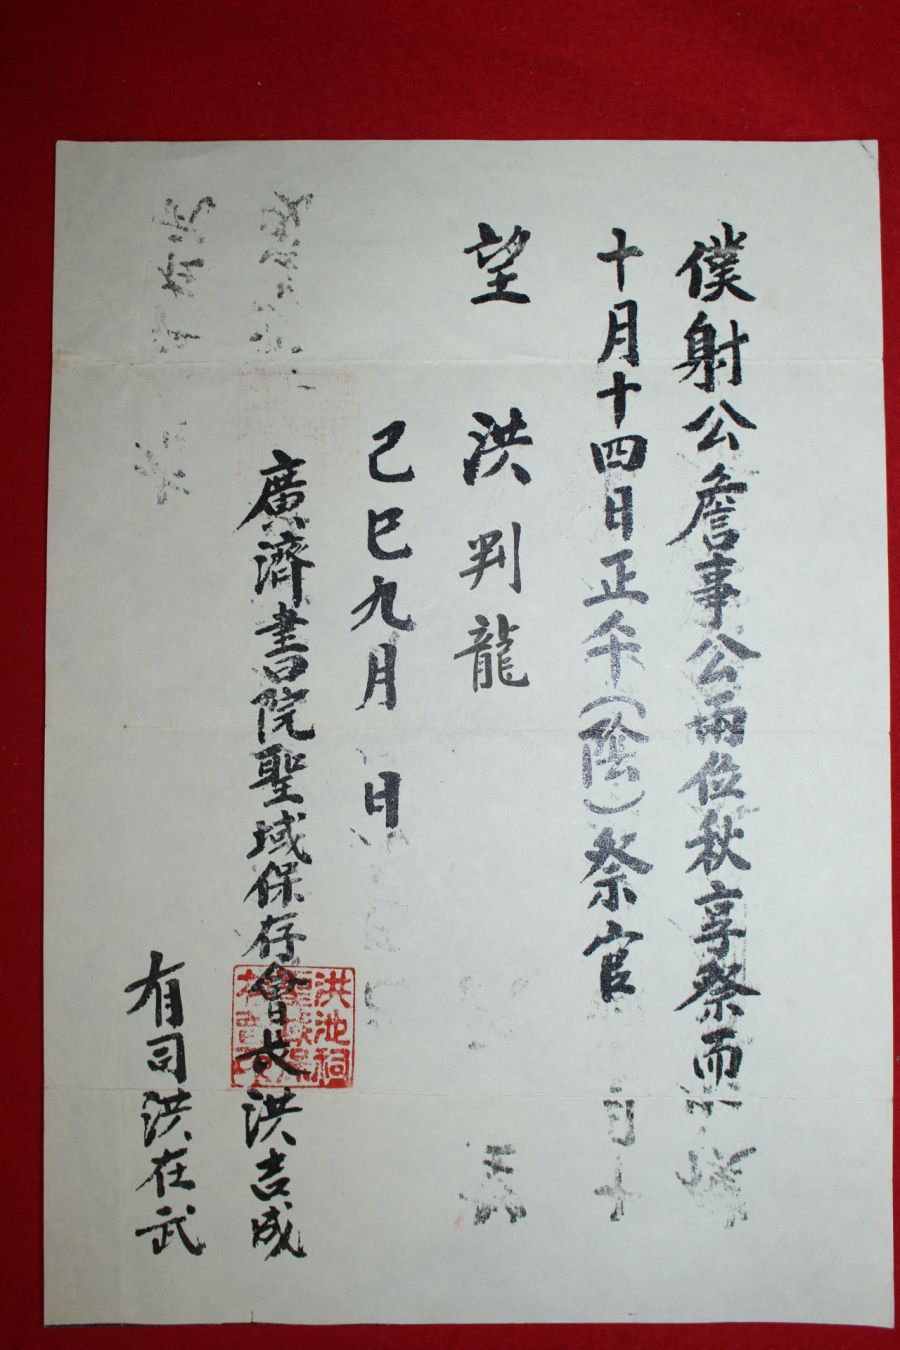 僕射公詹事公兩位秋享祭而
十月十四日正午(陰)祭官
望 洪判龍
己巳九月 日
廣濟書院聖域保存會長 洪吉成
有司 洪在武
洪池祠